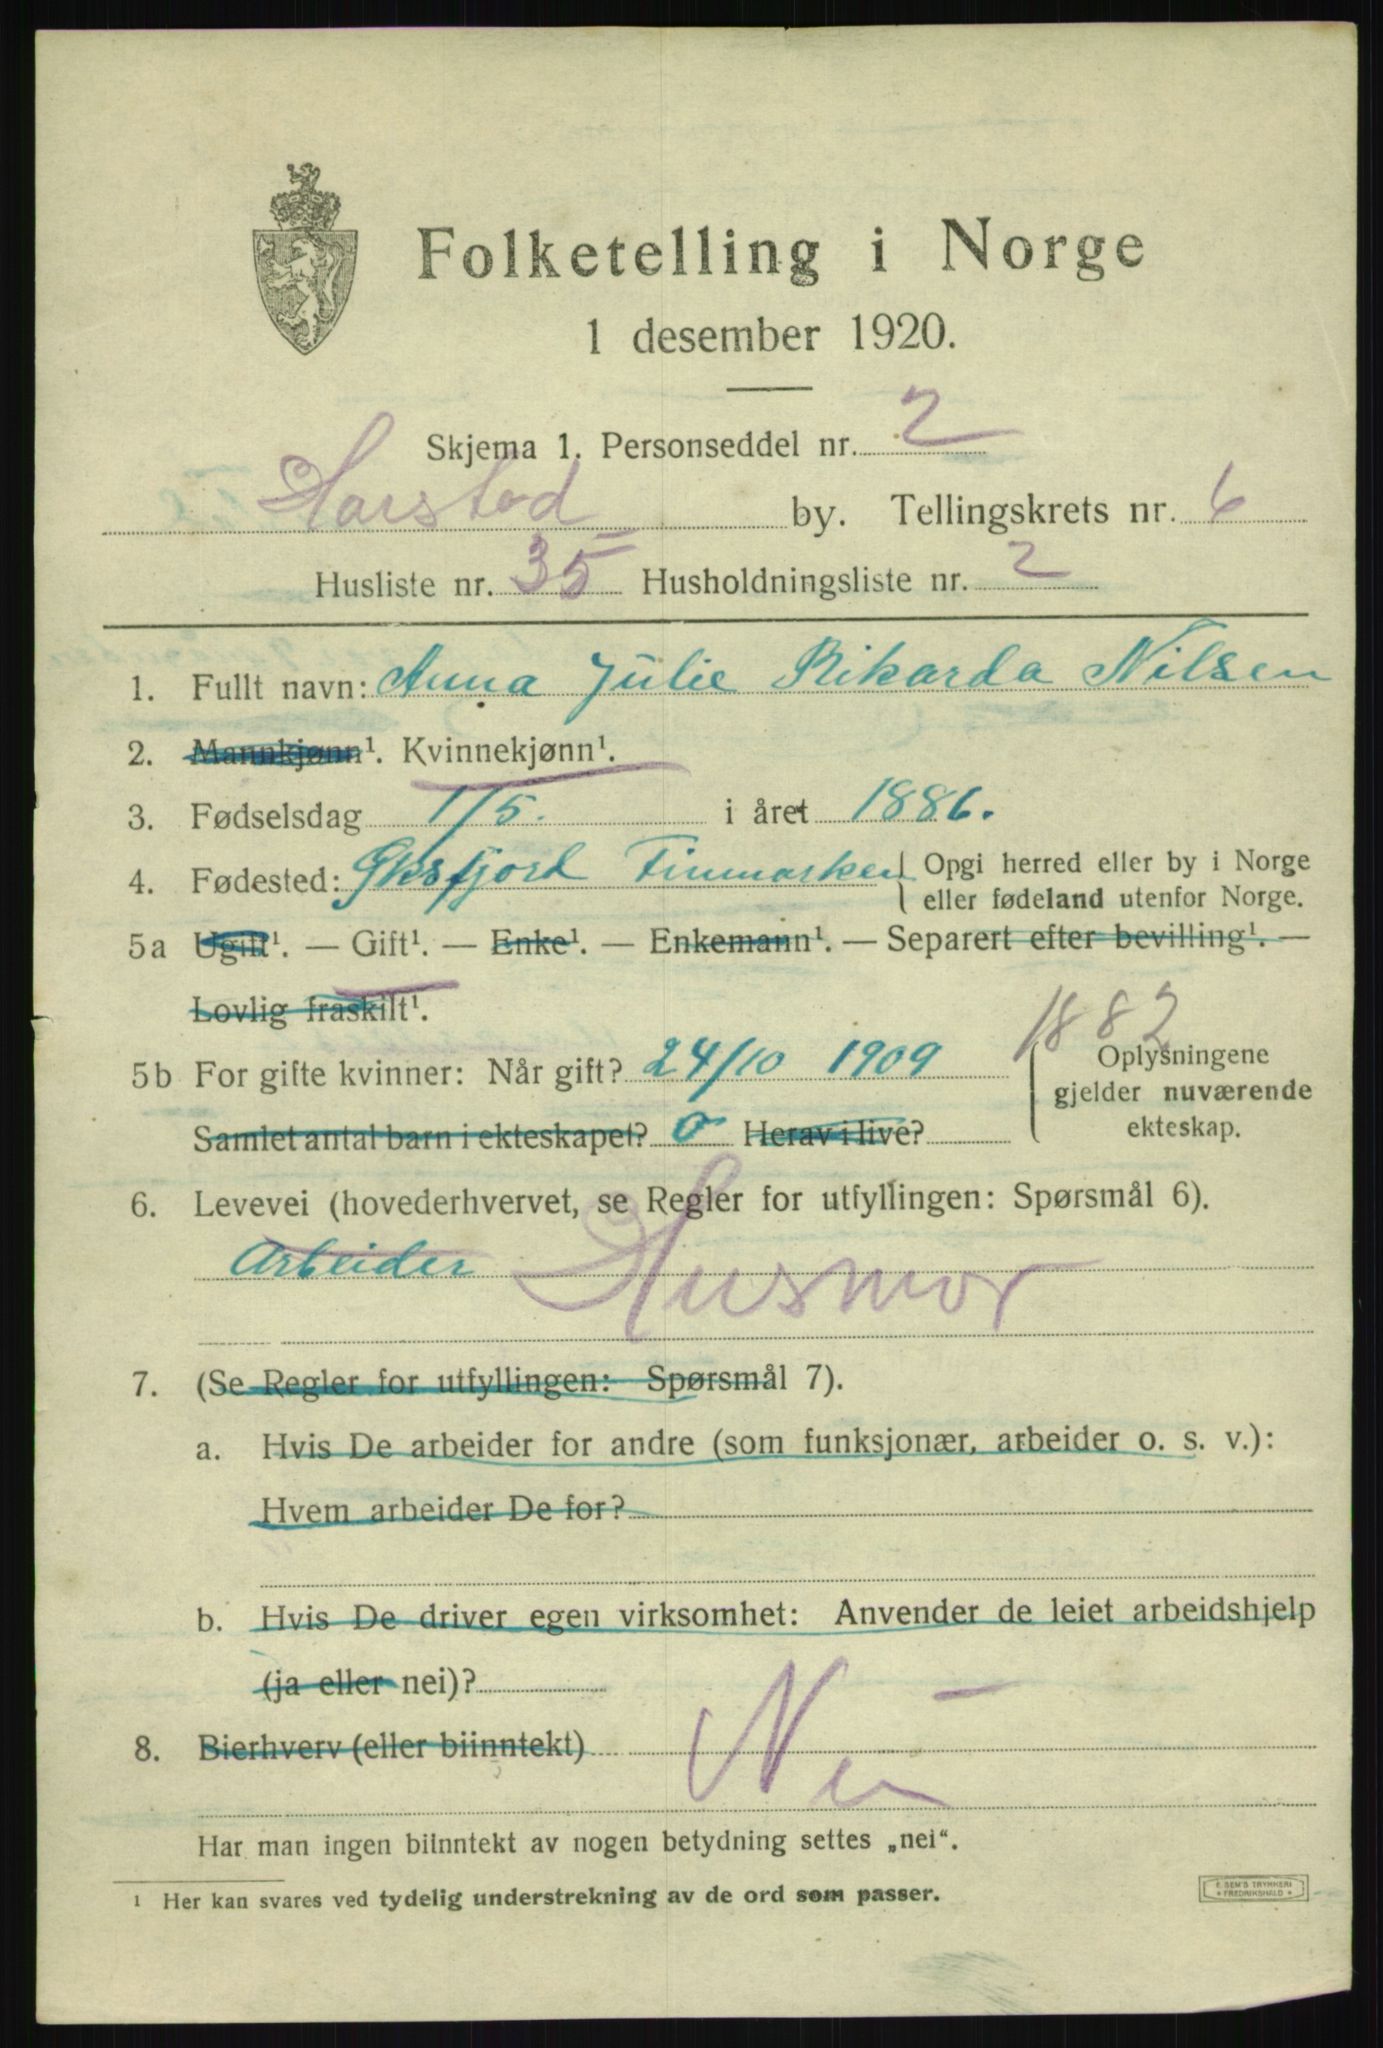 Folketelling i Norge
1 desember 1920.
Skjema 1. Personseddel nr. 2
Harstad by. Tellingskrets nr. 6
Husliste nr. 35 Husholdningsliste nr. 2
1. Fullt navn: Anna Julie Rikarda Nilsen
2. Mannkjønn¹. Kvinnekjønn¹.
3. Fødselsdag 1/5. i året 1886.
4. Fødested: Øksfjord Finmarken { Opgi herred eller by i Norge
eller fødeland utenfor Norge.
5a Ugift¹. — Gift¹. — Enke¹. — Enkemann¹. — Separert efter bevilling¹. —
Lovlig fraskilt¹.
1882
5b For gifte kvinner: Når gift? 24/10 1909 { Oplysningene
gjelder nuværende
ekteskap.
Samlet antal barn i ekteskapet? 0 Herav i live?
6. Levevei (hovederhvervet, se Regler for utfyllingen: Spørsmål 6).
Arbeider Husmor
7. (Se Regler for utfyllingen: Spørsmål 7).
a. Hvis De arbeider for andre (som funksjonær, arbeider o. s. v.):
Hvem arbeider De for?
b. Hvis De driver egen virksomhet: Anvender de leiet arbeidshjelp
(ja eller nei)?
8. Bierhverv (eller biinntekt) Nei
Har man ingen biinntekt av nogen betydning settes „nei“.
¹ Her kan svares ved tydelig understrekning av de ord som passer.
E. SEM'S TRYKKERI
FREDRIKSHALD